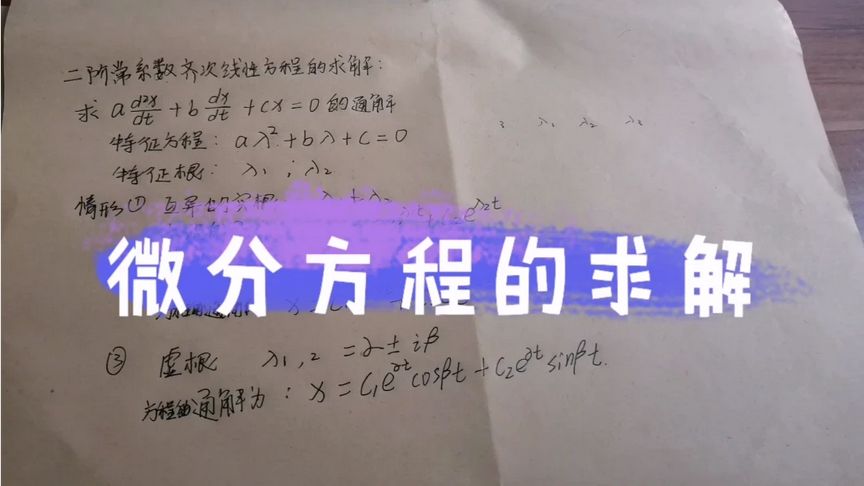 二阶常系数齐次线性方程的求解:
求 a d²x/dt + b dx/dt + cx = 0 的通解
特征方程: aλ² + bλ + c = 0
特征根: λ₁ ; λ₂
λ₁ λ₂ λ₃
情形① 互异的实根: λ₁ ≠ λ₂
+ C₂e^λ₂t
微分方程的求解
③ 虚根 λ₁,₂ = α ± iβ
方程的通解为: x = C₁e^αt cosβt + C₂e^αt sinβt.